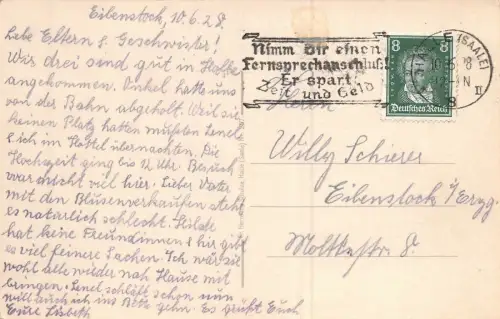 Eibenstock, 10.6.28.
Liebe Eltern & Geschwister!
Wir drei sind gut in Halle
angekommen. Onkel hatte uns
von der Bahn abgeholt. Weil sie
keinen Platz hatten mußten Lenel
& ich im Hotel übernachten. Die
Hochzeit ging bis 12 Uhr. Besuch
war nicht viel hier. Lieber Vater
mit den Blusenverkaufen steht
es natürlich schlecht. Hilde
hat keine Freundinnen & hier gibt
es viel feinere Sachen. Ich werde sie
wohl alle wieder nach Hause mit
bringen. Lenel schläft schon nun
will auch ich ins Bett gehn. Es grüßt Euch
Eure Lisbeth
Nimm Dir einen
Fernsprechanschluß!
Er spart
Zeit und Geld
(SAALE)
8 8
Deutsches Reich
Herrn
Willy Schierer
Eibenstock i/Erzg.
Moltkestr. 8.